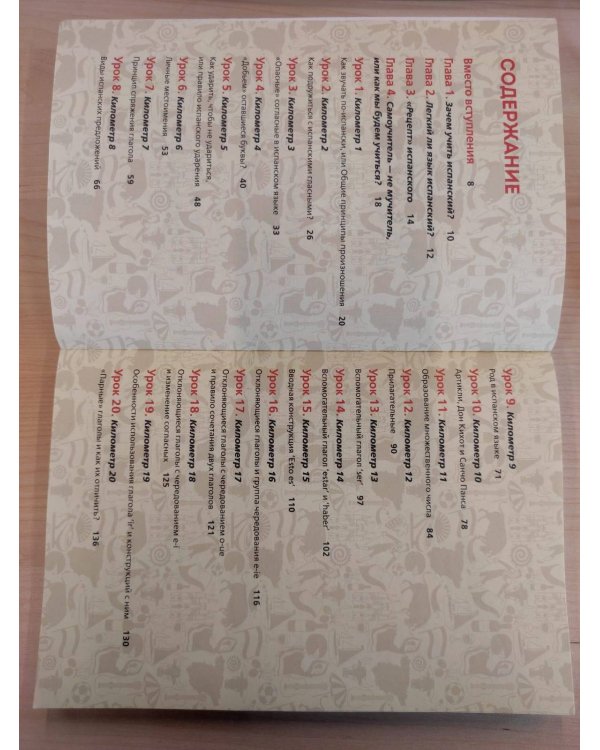 СОДЕРЖАНИЕ
Вместо вступления 8
Глава 1. Зачем учить испанский? 10
Глава 2. Легкий ли язык испанский? 12
Глава 3 «Рецепт» испанского 14
Глава 4. Самоучитель — не мучитель,
или как мы будем учиться? 18
Урок 1. Километр 1
Как звучать по-испански, или Общие принципы произношения 20
Урок 2. Километр 2
Как подружиться с испанскими гласными? 26
Урок 3. Километр 3
«Опасные» согласные в испанском языке 33
Урок 4. Километр 4
«Добьем» оставшиеся буквы? 40
Урок 5. Километр 5
Как ударить, чтобы не удариться,
или правило испанского ударения 48
Урок 6. Километр 6
Личные местоимения 53
Урок 7. Километр 7
Принцип спряжения глагола 59
Урок 8. Километр 8
Виды испанских предложений 66
Урок 9. Километр 9
Род в испанском языке 71
Урок 10. Километр 10
Артикли. Дон Кихот и Санчо Панса 78
Урок 11. Километр 11
Образование множественного числа 84
Урок 12. Километр 12
Прилагательные 90
Урок 13. Километр 13
Вспомогательный глагол 'ser' 97
Урок 14. Километр 14
Вспомогательный глагол 'estar' и 'haber' 102
Урок 15. Километр 15
Вводная конструкция 'Esto es' 110
Урок 16. Километр 16
Отклоняющиеся глаголы и группа чередования e-ie 116
Урок 17. Километр 17
Отклоняющиеся глаголы с чередованием o-ue
и правило сочетания двух глаголов 121
Урок 18. Километр 18
Отклоняющиеся глаголы с чередованием e-i
и изменения согласных 125
Урок 19. Километр 19
Особенности использования глагола 'ir' и конструкций с ним 130
Урок 20. Километр 20
«Парные» глаголы и как их отличить? 136